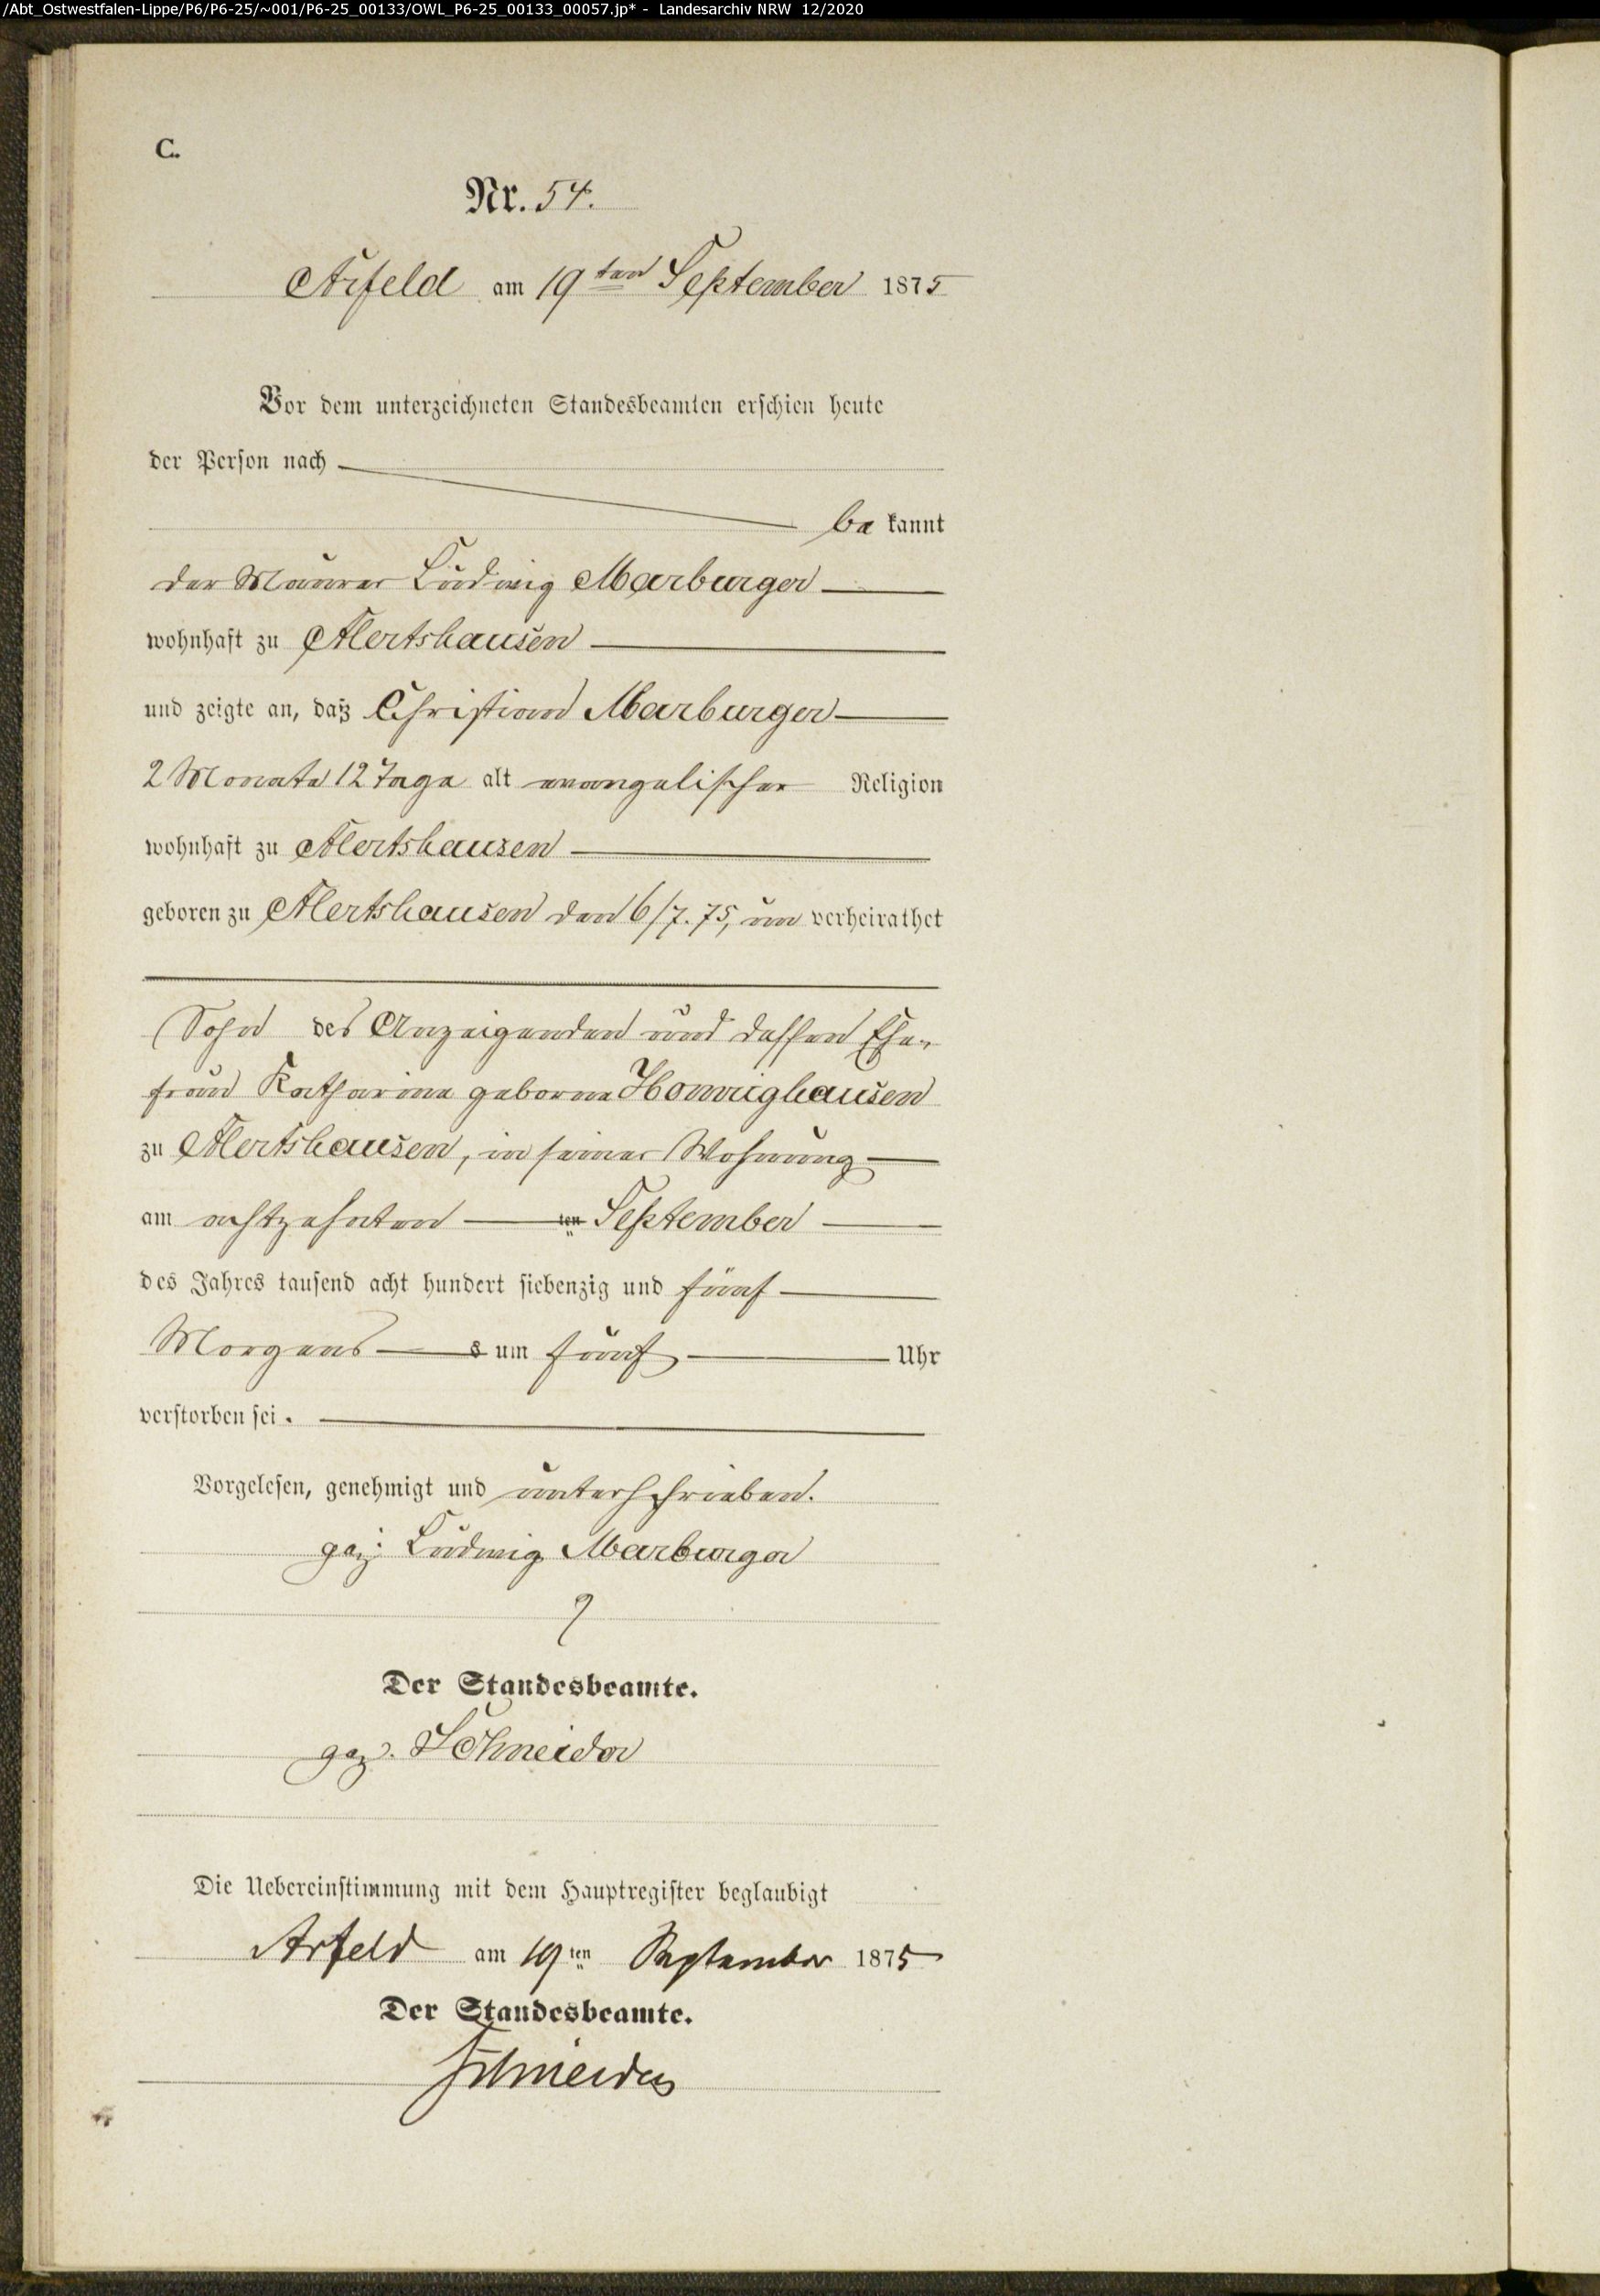 /Abt_Ostwestfalen-Lippe/P6/P6-25/~001/P6-25_00133/OWL_P6-25_00133_00057.jp* - Landesarchiv NRW 12/2020
C.
Nr. 54.
Arfeld am 19ten September 1875
Vor dem unterzeichneten Standesbeamten erschien heute
der Person nach
be kannt
der Maurer Ludwig Marburger
wohnhaft zu Alertshausen
und zeigte an, daß Christian Marburger
2 Monate 12 Tage alt evangelischer Religion
wohnhaft zu Alertshausen
geboren zu Alertshausen den 6/7. 75, un verheirathet
Sohn des Anzeigenden und dessen Ehe-
frau Katharine geborne Homrighausen
zu Alertshausen, in seiner Wohnung
am achtzehnten ten September
des Jahres tausend acht hundert siebenzig und fünf
Morgens s um fünf Uhr
verstorben sei.
Vorgelesen, genehmigt und unterschrieben.
gez: Ludwig Marburger
Der Standesbeamte.
gez. Schneider
Die Uebereinstimmung mit dem Hauptregister beglaubigt
Arfeld am 19ten September 1875
Der Standesbeamte.
Schneider